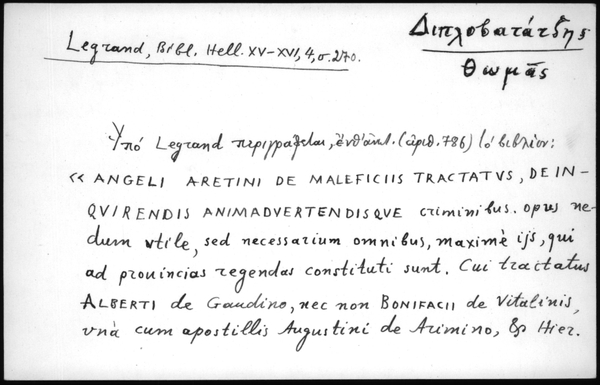 Legrand, Bibl. Hell. XV–XVI, 4, σ. 270.
Διπλοβατάτζης
Θωμᾶς
Ὑπό Legrand περιγράφεται, ἐνθ' ἀνωτ. (ἀριθ. 786) τό βιβλίον:
« ANGELI ARETINI DE MALEFICIIS TRACTATVS, DE IN-
QVIRENDIS ANIMADVERTENDISQVE criminibus. opus ne-
dum vtile, sed necessarium omnibus, maximè ijs, qui
ad prouincias regendas constituti sunt. Cui tractatus
ALBERTI de Gandino, nec non BONIFACII de Vitalinis,
vnà cum apostillis Augustini de Arimino, & Hier.